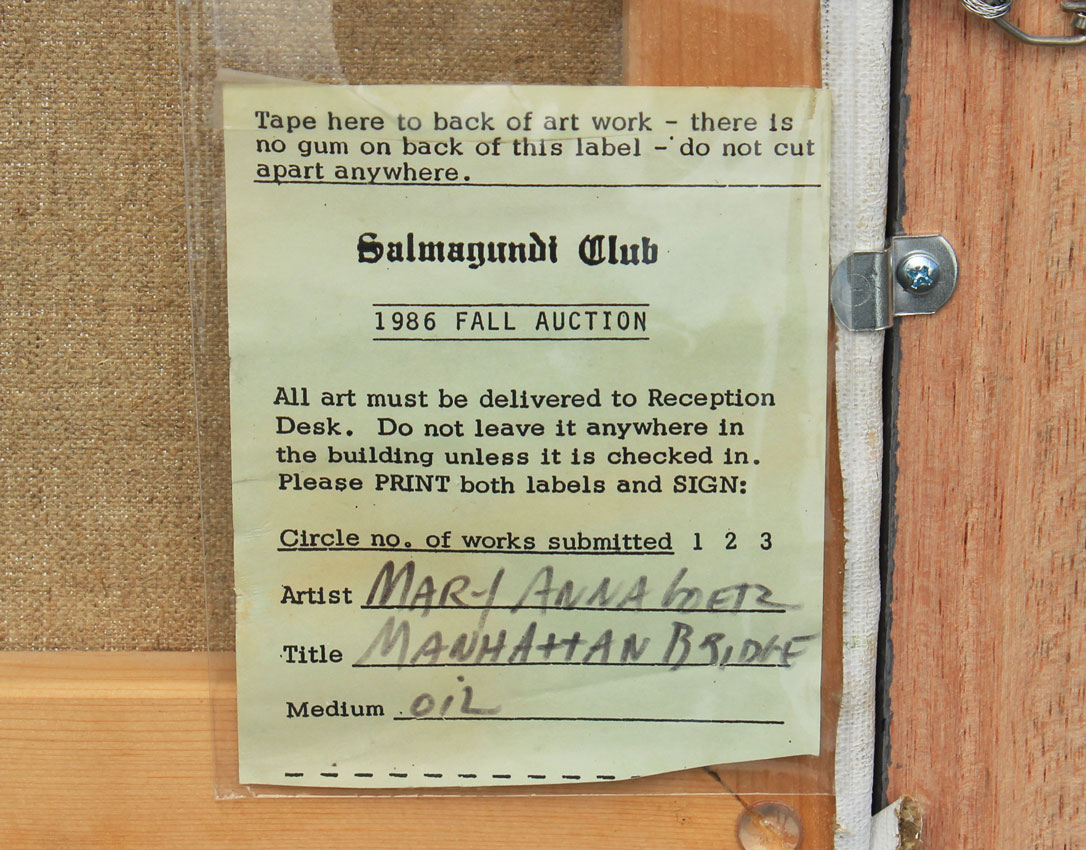 Tape here to back of art work - there is
no gum on back of this label - do not cut
apart anywhere.
Salmagundi Club
1986 FALL AUCTION
All art must be delivered to Reception
Desk. Do not leave it anywhere in
the building unless it is checked in.
Please PRINT both labels and SIGN:
Circle no. of works submitted 1 2 3
Artist MARY ANNA GOETZ
Title MANHATTAN BRIDGE
Medium OIL